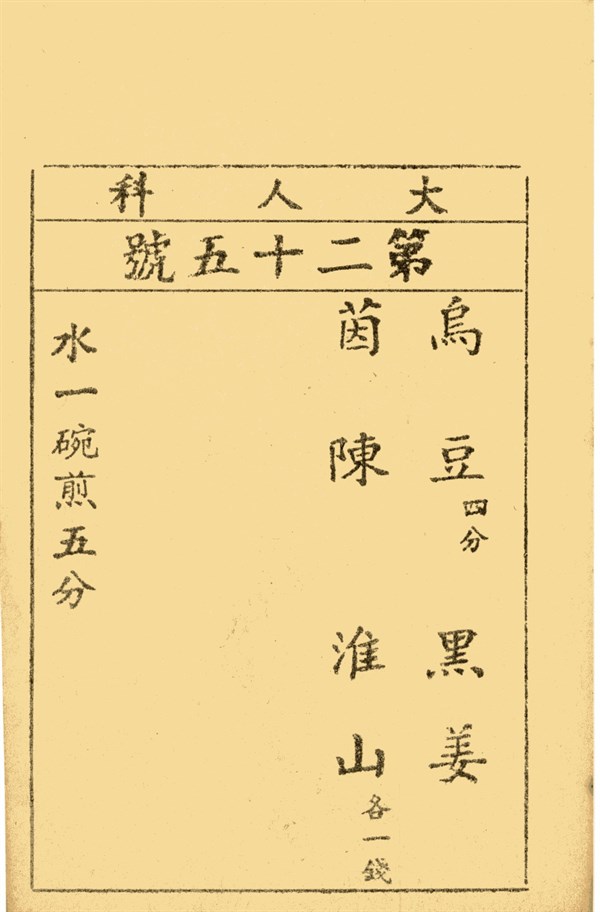 大人科
第二十五號
烏豆四分 黑姜
茵陳 淮山各一錢
水一碗煎五分